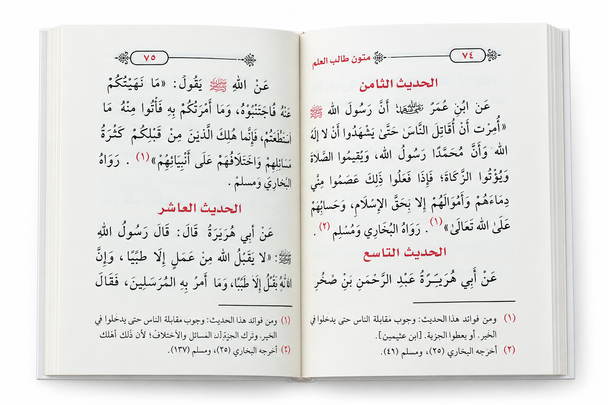 ٧٤
متون طالب العلم
الحديث الثامن
عَن ابنِ عُمَرَ أَنَّ رَسُولَ الله ﷺ
«أُمِرْت أَنْ أُقَاتِلَ النَّاسَ حَتَّى يَشْهَدُوا أَنْ لا إِلَهَ
الله وَأَنَّ مُحَمَّدًا رَسُولُ الله، وَيُقِيمُوا الصَّلاةَ
وَيُؤْتُوا الزَّكَاةَ؛ فَإِذَا فَعَلُوا ذَلِكَ عَصَمُوا مِنِّي
دِمَاءَهُمْ وَأَمْوَالَهُمْ إِلا بِحَقِّ الإِسْلَامِ، وَحِسَابُهُمْ
عَلَى الله تَعَالَى»(١). رَوَاهُ البُخَارِي وَمُسْلِم (٢).
الحديث التاسع
عَنْ أَبِي هُرَيْرَةَ عَبْدِ الرَّحْمَنِ بَنْ صُخْرِ
(١) ومن فوائد هذا الحديث: وجوب مقابلة الناس حتى يدخلوا في
الخير. أو يعطوا الجزية. [ابن عثيمين].
(٢) أخرجه البخاري (٢٥)، ومسلم (٤١).
٧٥
عَنْ اللهِ ﷺ يَقُولُ: «مَا نَهَيْتُكُمْ
عَنْهُ فَاجْتَنِبُوْهُ، وَمَا أَمَرْتُكُمْ بِهِ فَأْتُوا مِنْهُ مَا
اسْتَطَعْتُمْ، فَإِنَّمَا هُلِكَ الَّذِيْنَ مِنْ قَبْلِكُمْ كَثْرَةُ
مَسَائِلِهِمْ وَاخْتِلَافُهُمْ عَلَى أَنْبِيَائِهِمْ»(١). رَوَاهُ
البُخَارِي وَمُسلم.
الحديث العاشر
عَنْ أَبِي هُرَيرَةَ قَالَ: قَالَ رَسُولُ اللهِ
ﷺ: «لا يَقْبَلُ الله مِنْ عَمَلٍ إِلَا طَيِّبًا، وَإِنَّ
إِلَا طَيِّبًا، وَمَا أَمَرُ بِهِ المُرْسَلِينَ، فَقَالَ
(١) ومن فوائد هذا الحديث: وجوب مقابلة الناس حتى يدخلوا في
الخير، وترك المسائل والأختلاف؛ لأن ذلك أهلك
(٢) أخرجه البخاري (٢٥)، ومسلم (١٣٧).